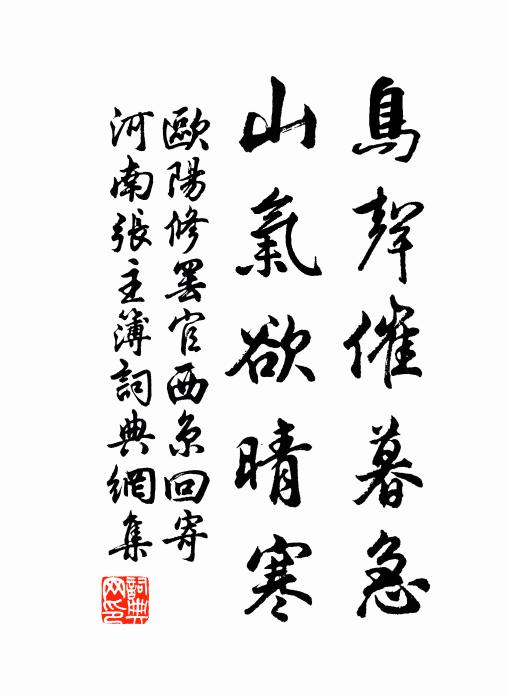 鳥聲催暮急
山氣欲晴寒
歐陽修罷官西京回寄
河南張主簿詞典網集
詞典
网印